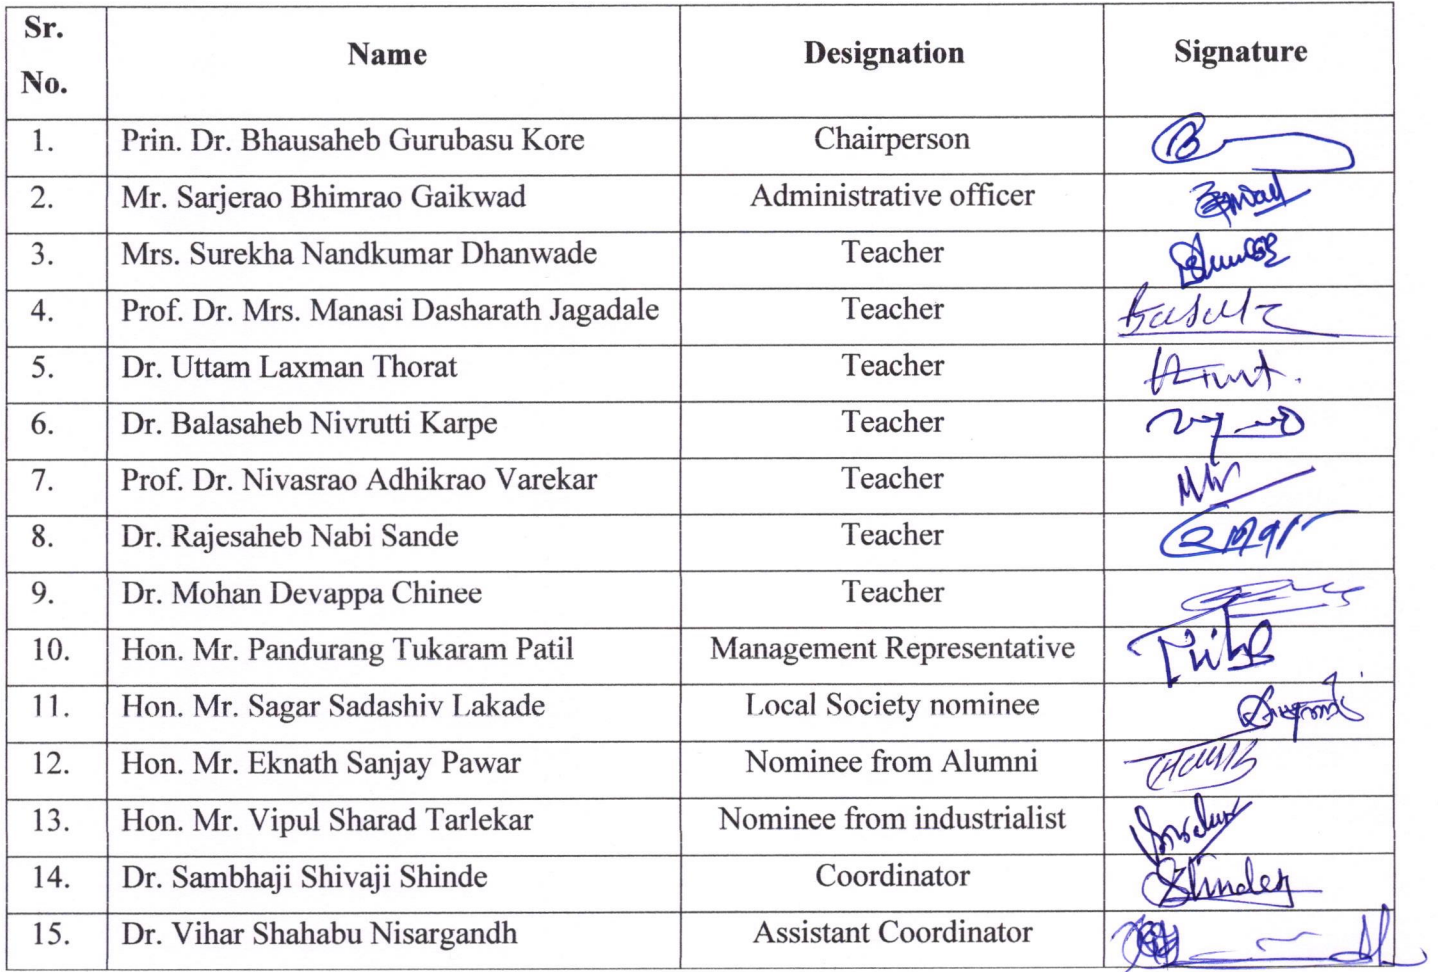 Sr. No. Name Designation Signature
1. Prin. Dr. Bhausaheb Gurubasu Kore Chairperson
2. Mr. Sarjerao Bhimrao Gaikwad Administrative officer
3. Mrs. Surekha Nandkumar Dhanwade Teacher
4. Prof. Dr. Mrs. Manasi Dasharath Jagadale Teacher
5. Dr. Uttam Laxman Thorat Teacher
6. Dr. Balasaheb Nivrutti Karpe Teacher
7. Prof. Dr. Nivasrao Adhikrao Varekar Teacher
8. Dr. Rajesaheb Nabi Sande Teacher
9. Dr. Mohan Devappa Chinee Teacher
10. Hon. Mr. Pandurang Tukaram Patil Management Representative
11. Hon. Mr. Sagar Sadashiv Lakade Local Society nominee
12. Hon. Mr. Eknath Sanjay Pawar Nominee from Alumni
13. Hon. Mr. Vipul Sharad Tarlekar Nominee from industrialist
14. Dr. Sambhaji Shivaji Shinde Coordinator
15. Dr. Vihar Shahabu Nisargandh Assistant Coordinator